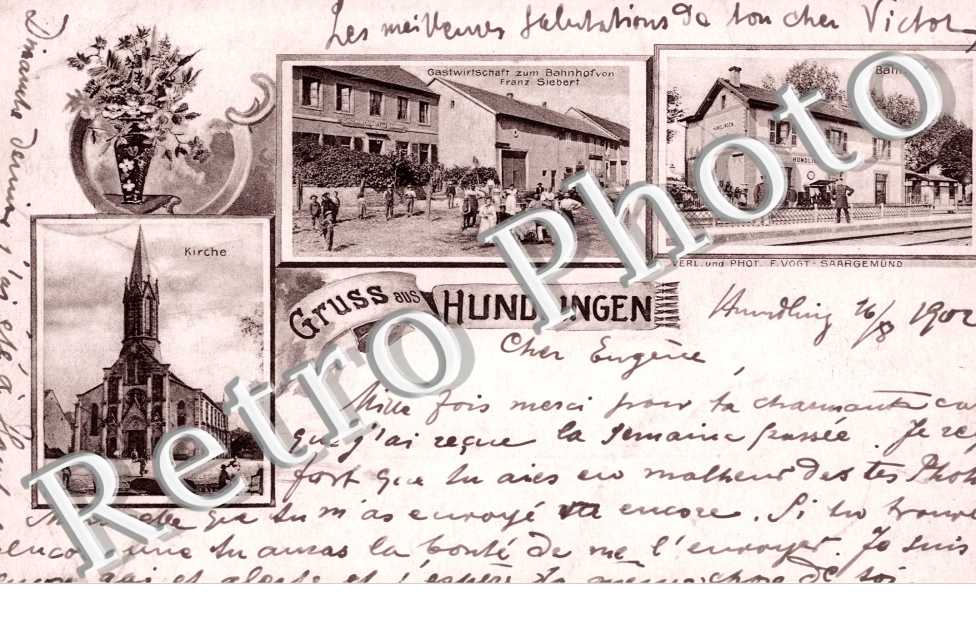 Les meilleures salutations de ton cher Victor
Dimanche dernier j'ai été à
Gastwirtschaft zum Bahnhof von
Franz Siebert
Bahn
HUNDLINGEN
HUNDLI
Kirche
VERL. und PHOT. F. VOGT - SAARGEMÜND
GRUSS aus HUNDLINGEN
Retro Photo
Hundling 16/8 1902
Cher Eugène
Mille fois merci pour ta charmante
que j'ai reçue la semaine passée. Je re
fort que tu aies eu malheur des tes Phot
que tu m'as envoyé encore. Si tu trouve
une tu auras la bonté de me l'envoyer. Je suis
gai et et j'espère la même chose de toi